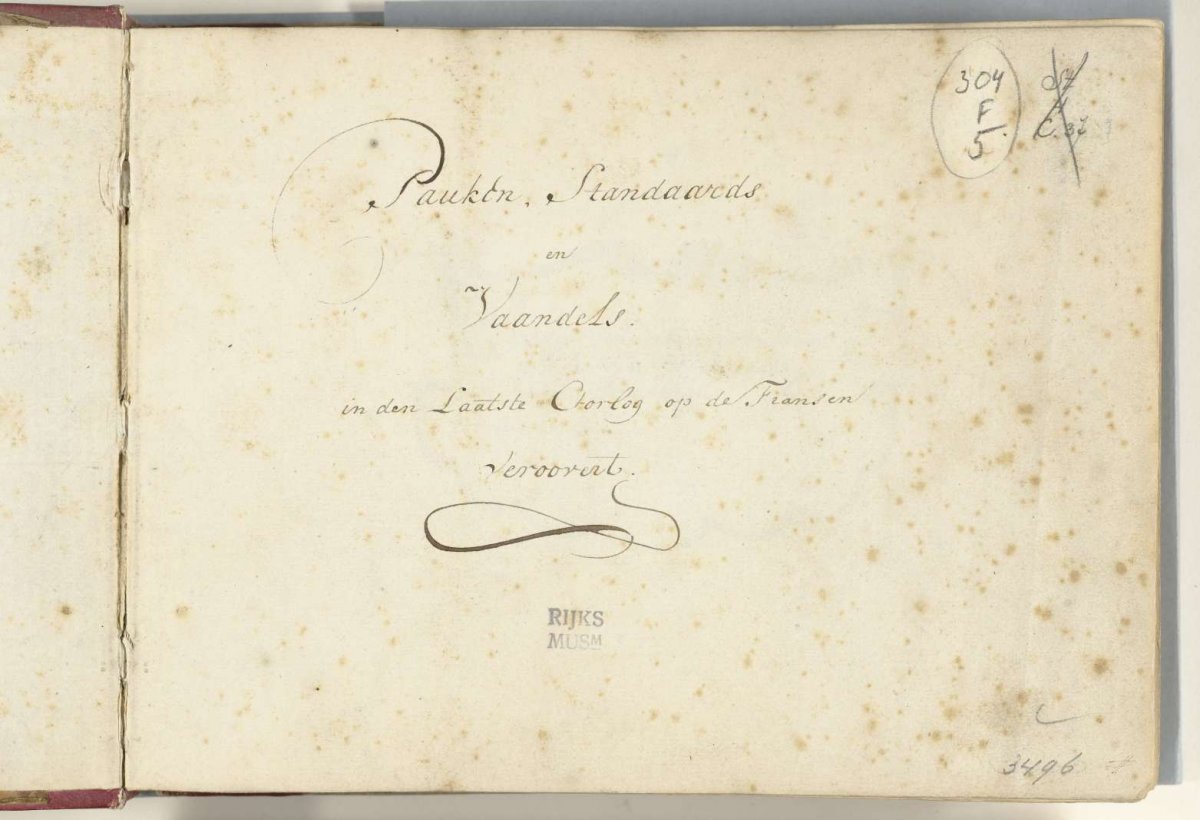 Pauken, Standaards
en
Vaandels.
in den Laatste Oorlog op de Fransen
Veroovert.
RIJKS
MUSM
304
F
5.
3496